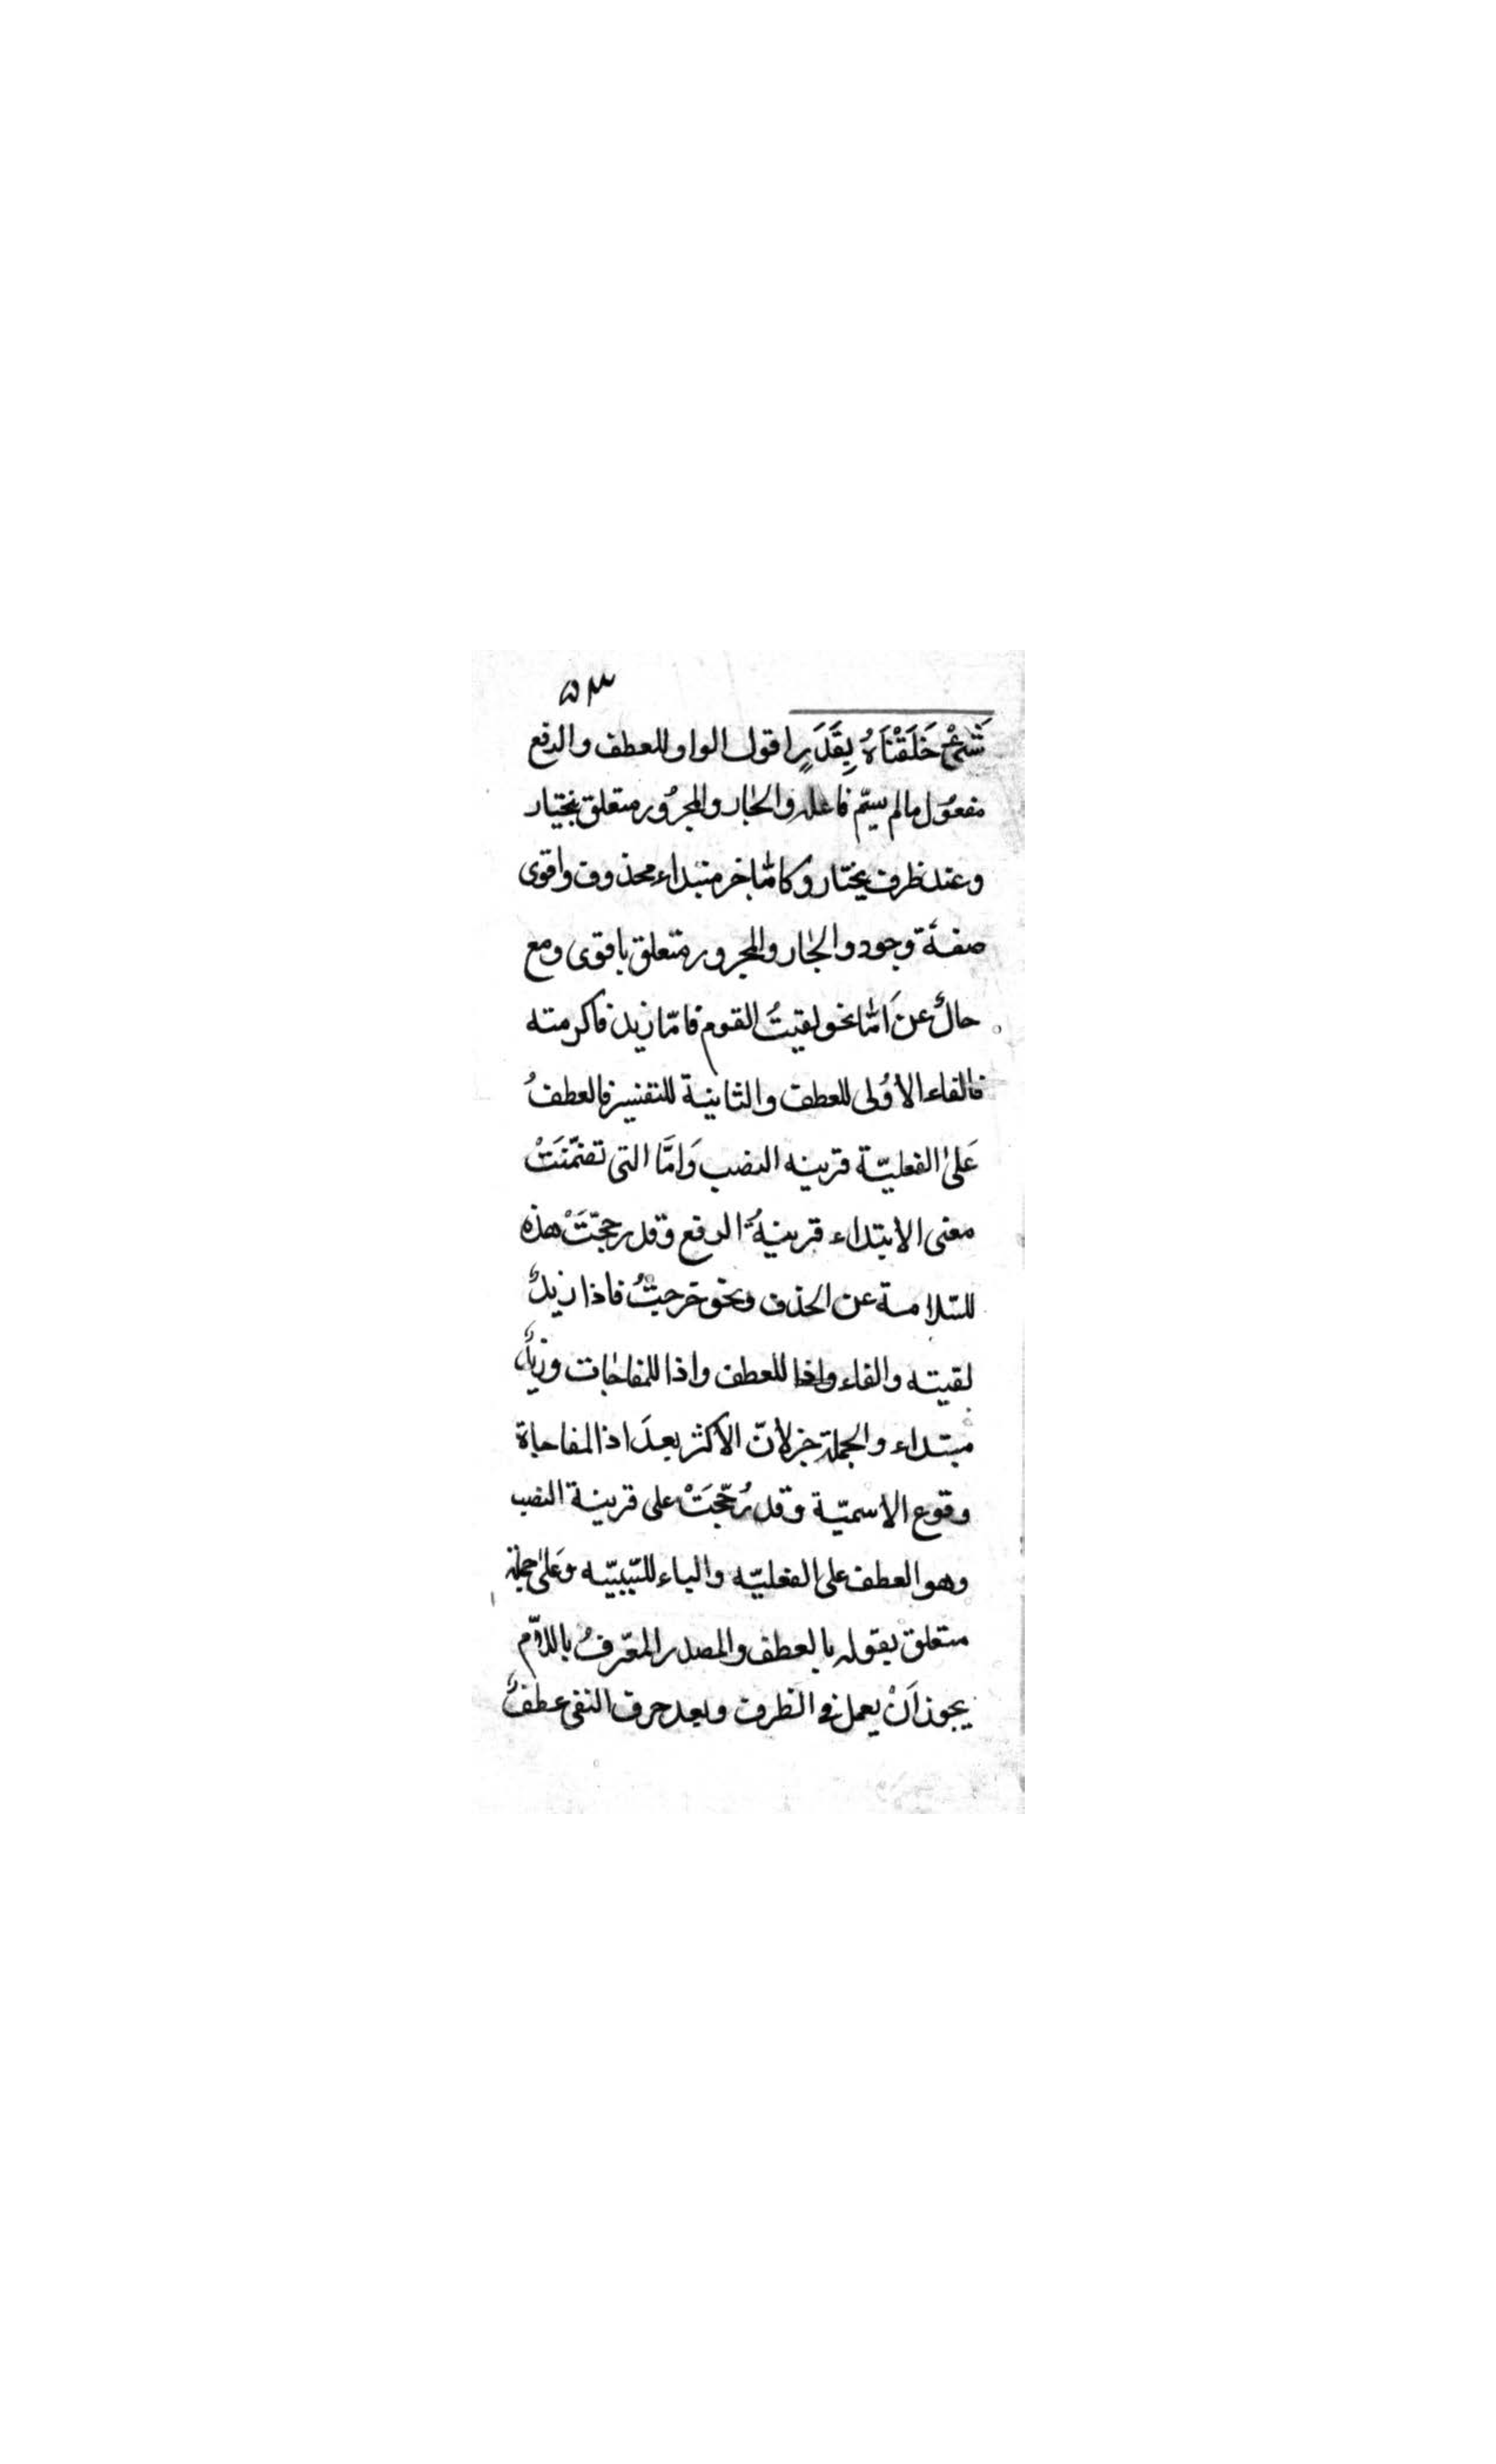 ٥٣
شَیْءٍ خَلَقْنَاهُ بِقَدَرٍ اقول الواو للعطف والرفع
مفعُول مالم یسمّ فاعله والجار والمجرُور متعلق بیختیار
وعند ظرف یختار وکامّا خبر مبتداء محذوف واقوی
صفة وجود والجار والمجرور متعلق باقوی ومع
حالٌ عن اَمّا نحو لقیتُ القوم فامّا زید فاکرمته
فالفاء الاُولی للعطف والثانیة للتفسیر فالعطفُ
عَلیٰ الفعلیّة قرینه النصب وَامَّا التی تضمّنَتْ
معنی الابتداء قرینةُ الرفع وقد رجحّتَْ هذه
للسّلامة عن الحذف ونحو خرجتُ فاذا زیدٌ
لقیته والفاء واذا للعطف واذا للمفاجات وزیدٌ
مبتداء والجملة خبر لانّ الاکثر بعدَ اذا المفاجاة
وقوع الاسمیّة وقد رُجّحَتْ علی قرینة النصب
وهو العطف علی الفعلیّه والباء للسّببیّه وعَلیٰ جملة
متعلق بقوله بالعطف والمصدر المعّرفُ باللاّم
یجوز اَنْ یعمل فی الظرف وبعد حرف النفی عطفٌ